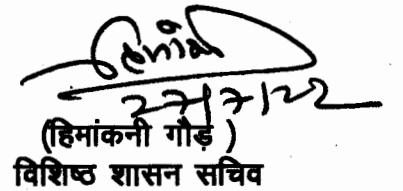 हिमांकनी
27/7/22
(हिमांकनी गौड़ )
विशिष्ठ शासन सचिव